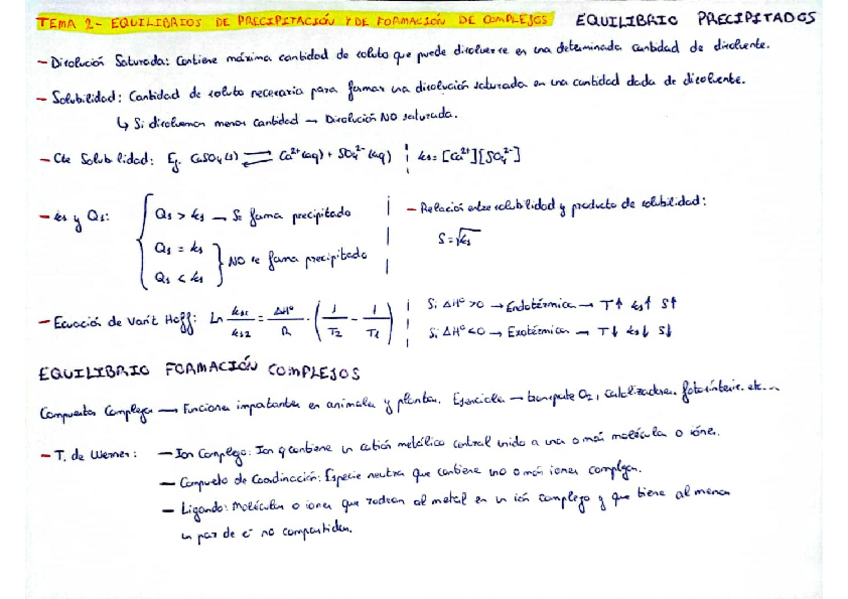 TEMA 2- EQUILIBRIOS DE PRECIPITACIÓN Y DE FORMACIÓN DE COMPLEJOS EQUILIBRIO PRECIPITADOS
- Disolución Saturada: Contiene máxima cantidad de soluto que puede disolverse en una determinada cantidad de disolvente.
- Solubilidad: Cantidad de soluto necesaria para formar una disolución saturada en una cantidad dada de disolvente.
↳ Si disolvemos menor cantidad → Disolución NO saturada.
- Cte Solubilidad: Ej. CaSO4(s) ⇌ Ca²⁺(aq) + SO4²⁻(aq) ks = [Ca²⁺][SO4²⁻]
- ks y Qs:
Qs > ks → Se forma precipitado
Qs = ks
Qs < ks
NO se forma precipitado
- Relación entre solubilidad y producto de solubilidad:
S = √ks
- Ecuación de Van't Hoff: Ln ks1/ks2 = ΔH°/R · (1/T2 - 1/T1)
Si ΔH° > 0 → Endotérmica → T↑ ks↑ S↑
Si ΔH° < 0 → Exotérmica → T↓ ks↓ S↓
EQUILIBRIO FORMACIÓN COMPLEJOS
Compuestos Complejos → Funciones importantes en animales y plantas. Esenciales → transporte O2, catalizadores, fotosíntesis, etc...
- T. de Werner: - Ion Complejo: Ion q contiene un catión metálico central unido a una o más moléculas o iones.
- Compuesto de Coordinación: Especie neutra que contiene uno o más iones complejos.
- Ligando: Moléculas o iones que rodean al metal en un ión complejo y que tiene al menos
un par de e⁻ no compartidos.